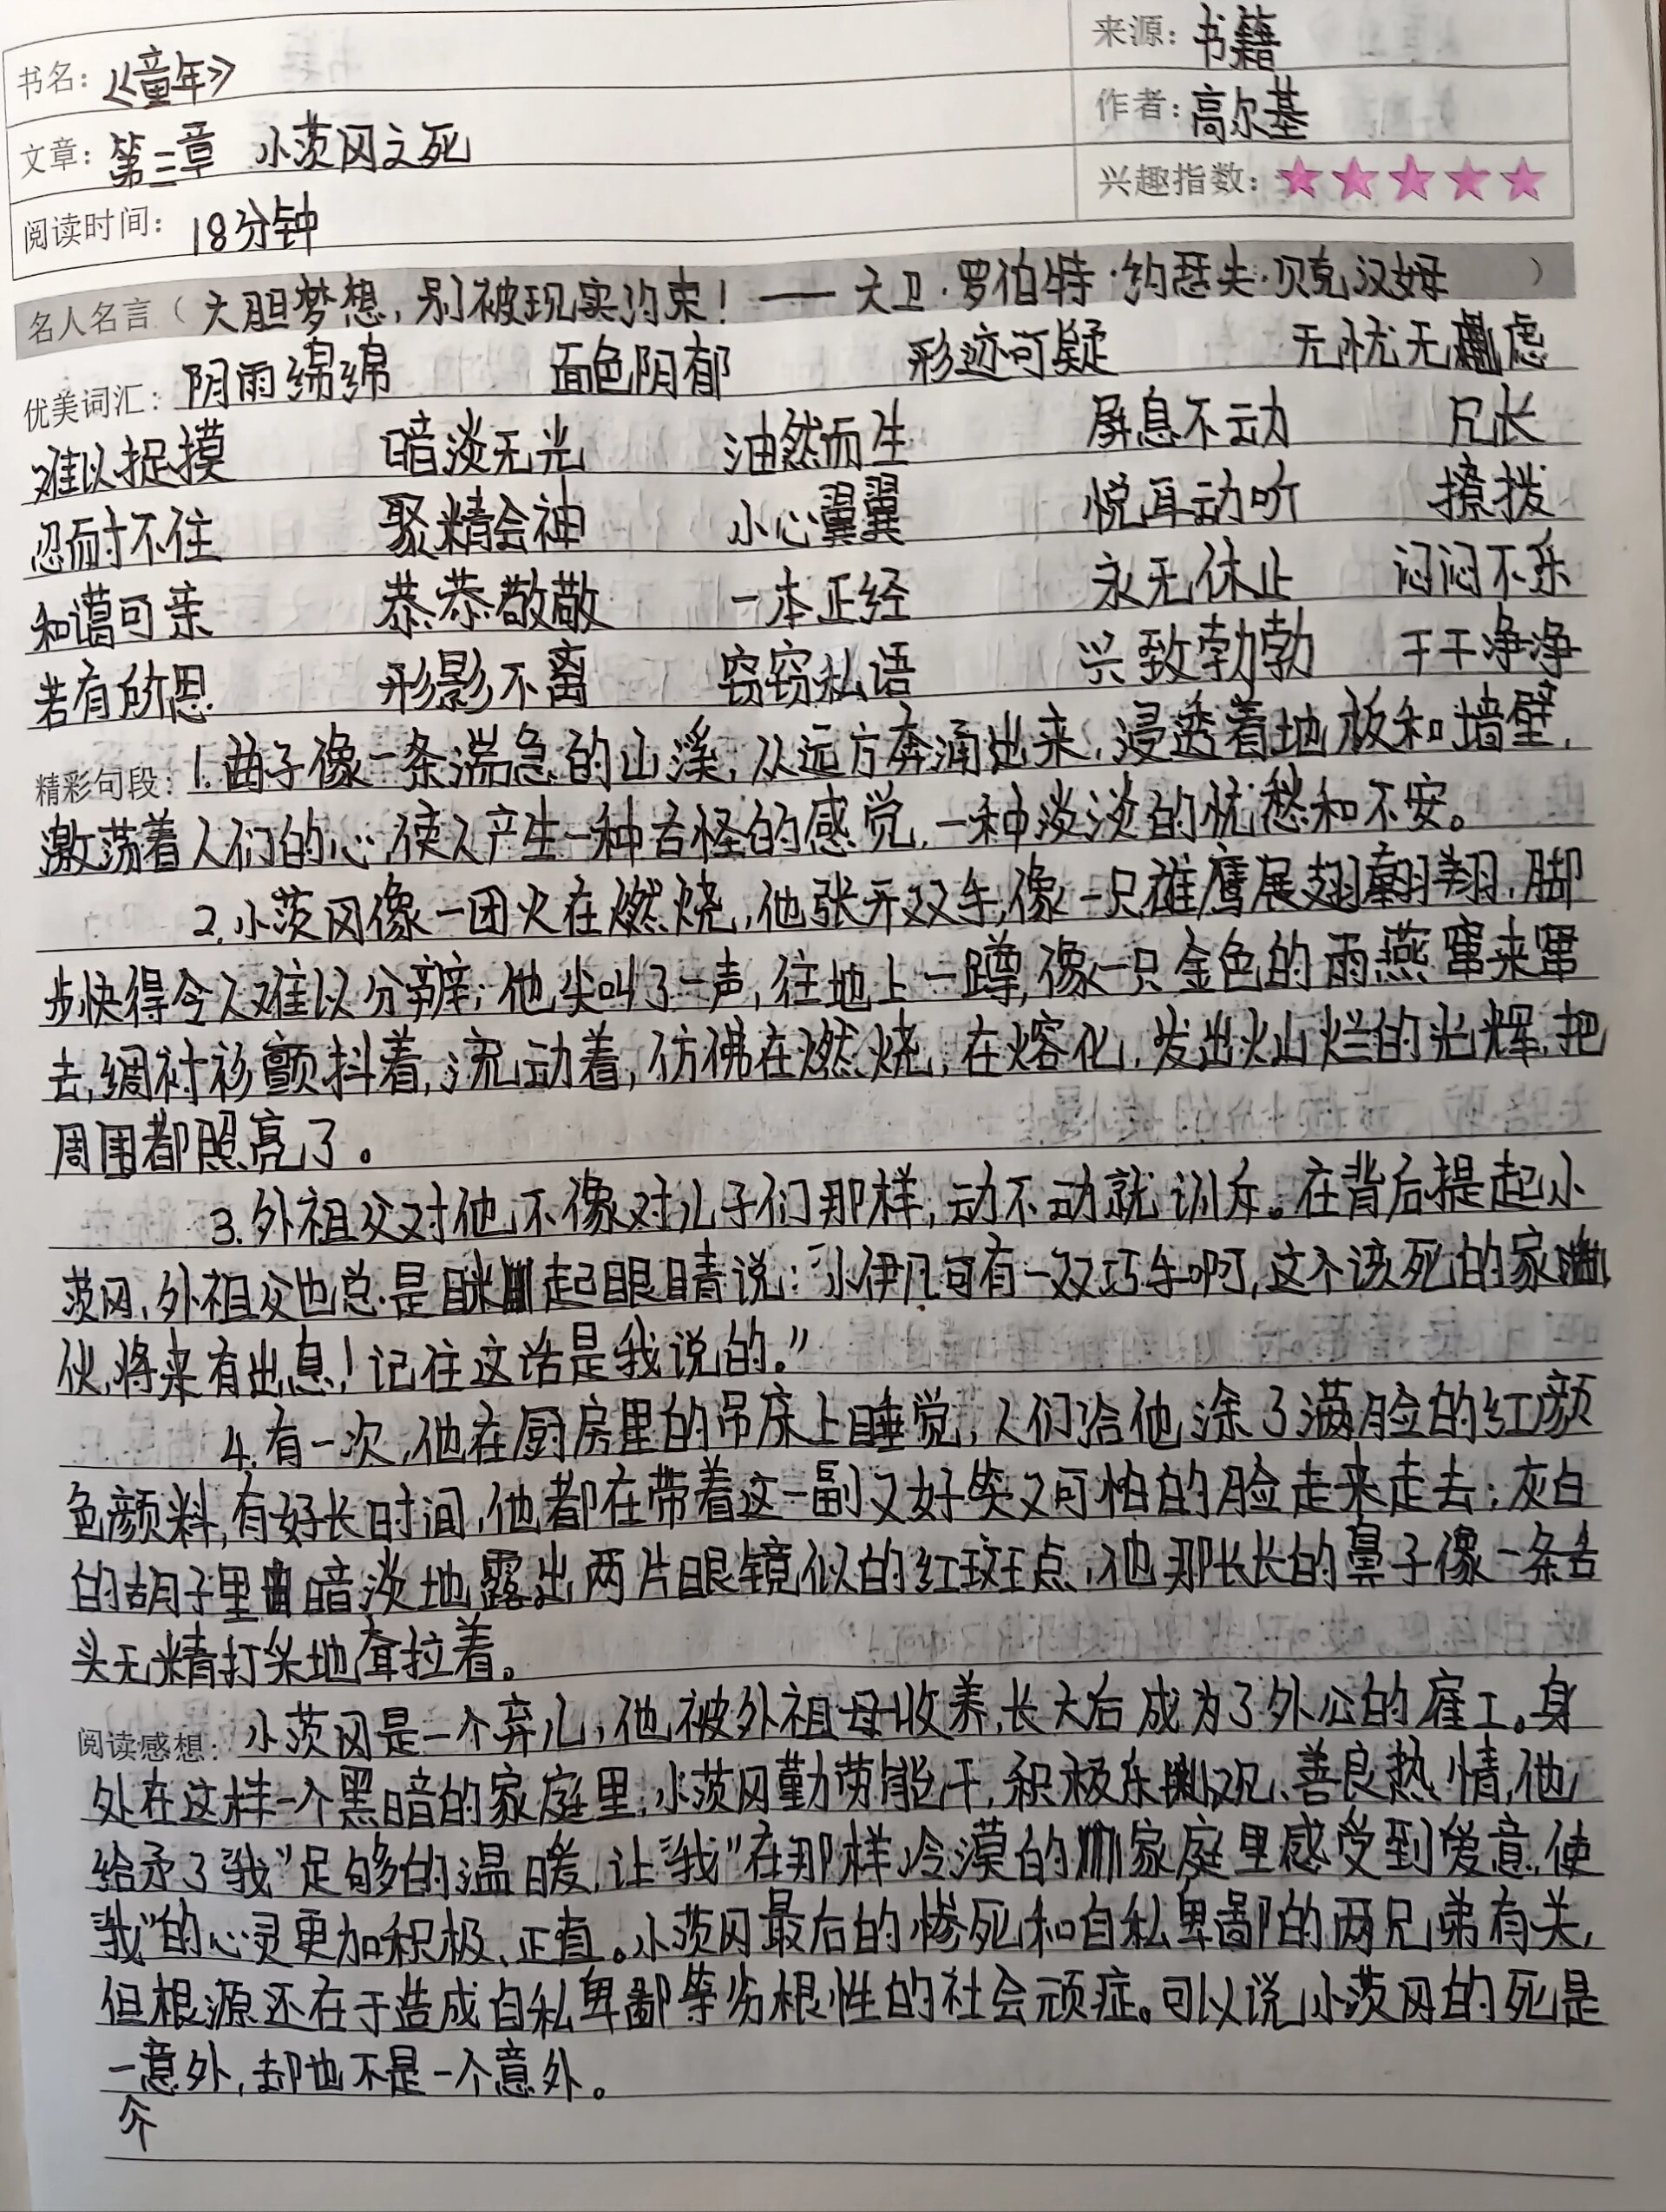 书名：《童年》
来源：书籍
文章：第三章 小茨冈之死
作者：高尔基
阅读时间：18分钟
兴趣指数：★★★★★
名人名言（大胆梦想，别被现实约束！——大卫·罗伯特·约瑟夫·贝克汉姆）
优美词汇：阴雨绵绵 面色阴郁 形迹可疑 无忧无虑
难以捉摸 暗淡无光 油然而生 屏息不动 兄长
忍耐不住 聚精会神 小心翼翼 悦耳动听 撩拨
和蔼可亲 恭恭敬敬 一本正经 永无休止 闷闷不乐
若有所思 形影不离 窃窃私语 兴致勃勃 干干净净
精彩句段：1.曲子像一条湍急的山溪，从远方奔涌出来，浸透着地板和墙壁，
激荡着人们的心，使人产生一种古怪的感觉，一种淡淡的忧愁和不安。
2.小茨冈像一团火在燃烧，他张开双手，像一只雄鹰展翅翱翔，脚
步快得令人难以分辨；他尖叫了一声，往地上一蹲，像一只金色的雨燕窜来窜
去，绸衬衫颤抖着，流动着，仿佛在燃烧，在熔化，发出火山烂的光辉，把
周围都照亮了。
3.外祖父对他不像对儿子们那样，动不动就训斥。在背后提起小
茨冈，外祖父也总是眯起眼睛说：“小伊凡可有一双巧手啊，这个该死的家
伙，将来有出息！记住这话是我说的。”
4.有一次，他在厨房里的吊床上睡觉，人们给他涂了满脸的红颜
色颜料，有好长时间，他都在带着这一副又好笑又可怕的脸走来走去；灰白
的胡子里暗淡地露出两片眼镜似的红斑点，他那长长的鼻子像一条舌
头无精打采地耷拉着。
阅读感想：小茨冈是一个弃儿，他被外祖母收养，长大后成为了外公的雇工。身
处在这样一个黑暗的家庭里，小茨冈勤劳能干，积极乐观、善良热情，他
给予了“我”足够的温暖，让“我”在那样冷漠的家庭里感受到爱意，使
“我”的心灵更加积极、正直。小茨冈最后的惨死和自私卑鄙的两兄弟有关，
但根源还在于造成自私卑鄙等劣根性的社会顽症。可以说小茨冈的死是
一个意外，却也不是一个意外。